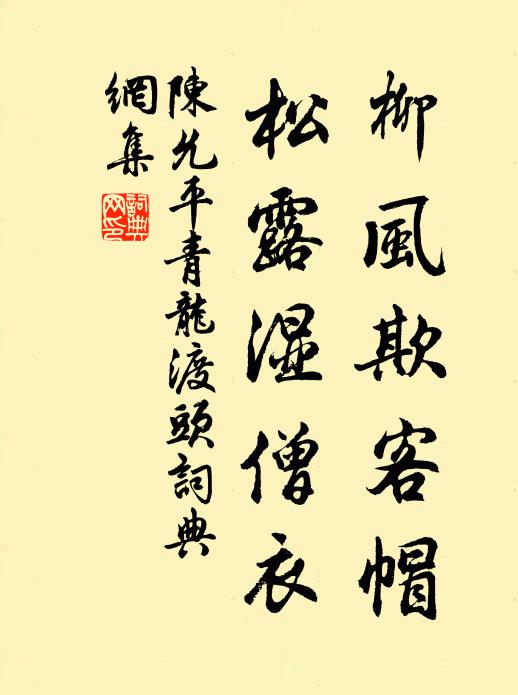 柳風欺客帽
松露湿僧衣
陳允平青龍渡頭詞典
網集
詞典
网印